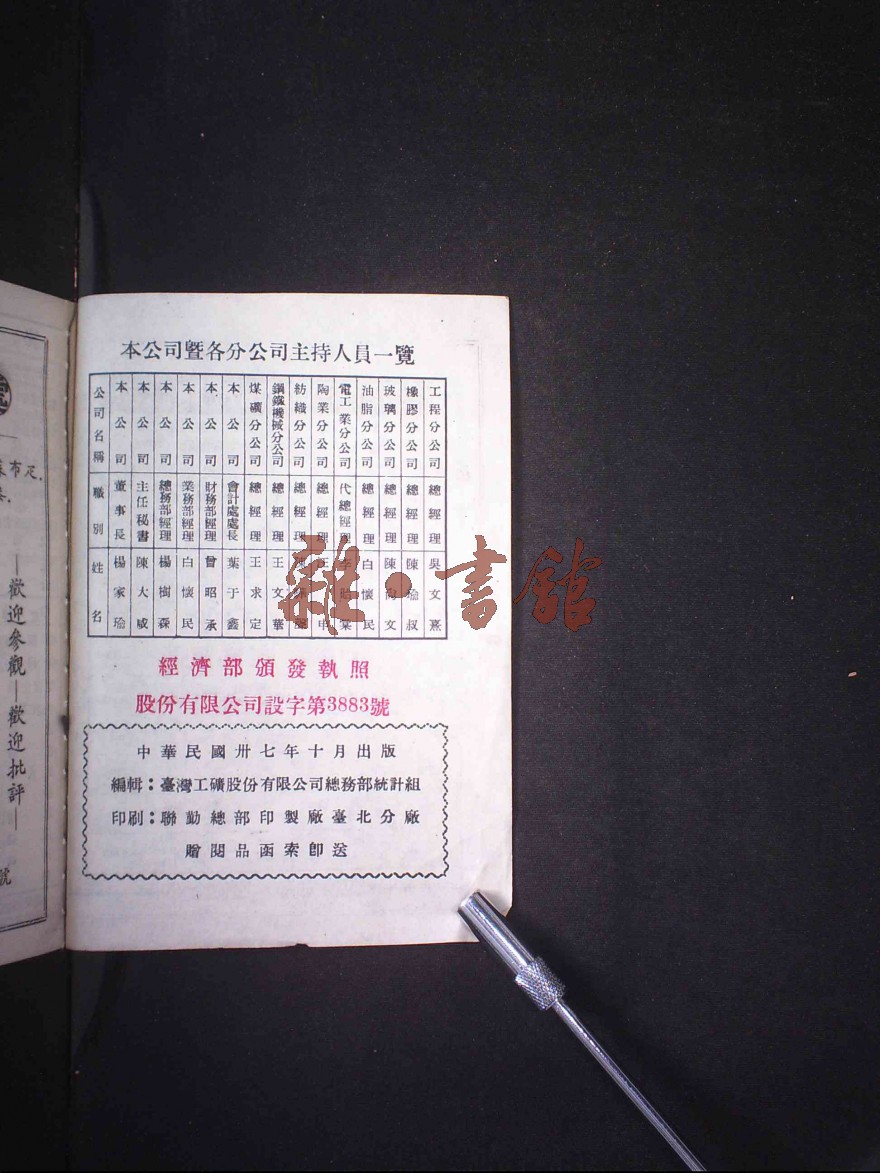 本公司曁各分公司主持人員一覽
公司名稱 職別 姓名
本公司 董事長 楊家瑜
本公司 主任秘書 陳大咸
本公司 總務部經理 楊樹森
本公司 業務部經理 白懷民
本公司 財務部經理 曾昭承
本公司 會計處處長 葉于鑫
煤礦分公司 總經理 王求定
鋼鐵機械分公司 總經理 王文華
紡織分公司 總經理
陶業分公司 總經理
電工業分公司 代總經理
油脂分公司 總經理 白懷民
玻璃分公司 總經理 陳文
橡膠分公司 總經理 陳瑜叔
工程分公司 總經理 吳文熹
經濟部頒發執照
股份有限公司設字第3883號
中華民國卅七年十月出版
編輯：臺灣工礦股份有限公司總務部統計組
印刷：聯勤總部印製廠臺北分廠
贈閱品函索卽送
布疋.
—歡迎參觀—歡迎批評—
號
雜·書館